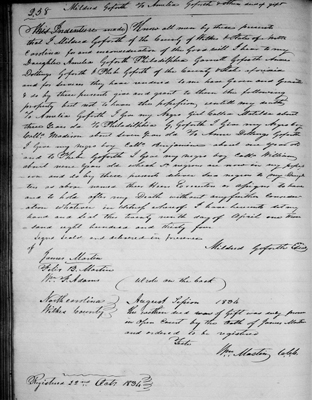 358 Mildred Goforth To Amelia Goforth & others deed of gift
This Indenture made Know all men by these presents
that I Mildred Goforth of the County of Wilkes & State of North
Carolina for and in consideration of the Good will I have to my
Daughter Amelia Goforth Philadelphia Goforth Anne
Goforth & Phebe Goforth of the County & State aforesaid
and for love they have given Give and grant
& by these presents give and grant to them the following
property but not to have their possession, until my death
To Amelia Goforth I give my Negro Girl Called Matilda about
three years old To Philadelphia G. Goforth I give my Negro
Called Madison about four years old To Anne Goforth
I Give my negro boy Call Benjamin about one year old
and to Phebe Goforth I give my negro boy Call William
about nine years old which Negroes are now in my
and so by these presents above said negroes to my Daugh
ters as above named their Heirs Executors or assigns to have
and to hold after my Death without any further
whereof I have hereunto set my
hand and seal this twenty ninth day of April one thou
sand eight hundred and thirty four
Signed seald and delivered in presence
of Mildred Goforth Seal
James Martin
B. Martin
Wm Adams wrote on the back
North Carolina August Session 1834
Wilkes County the written deed of Gift was
in Open Court by the Oath of James Martin
and ordered to be registered
Teste
Wm Maston
Registered 22nd Octr 1834